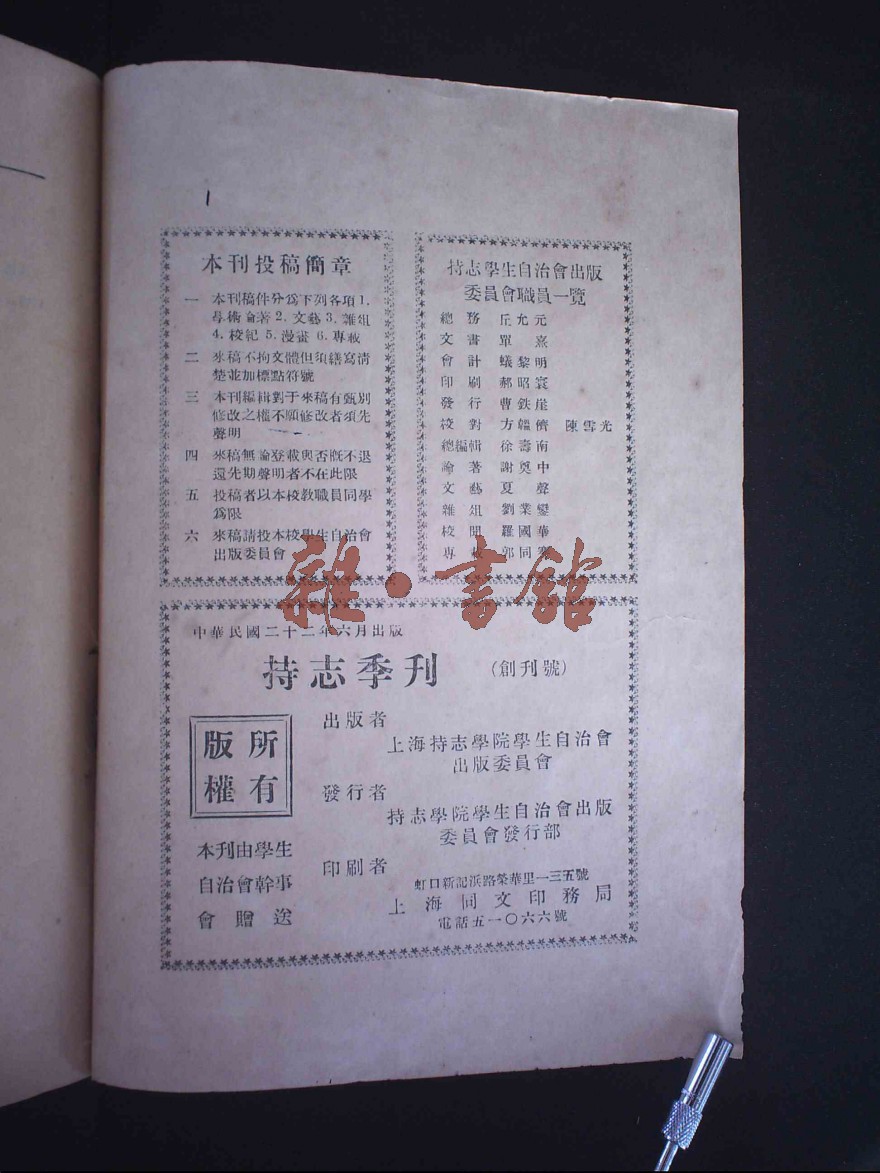 本刊投稿簡章
一 本刊稿件分爲下列各項1.
學術論著2.文藝3.雜俎
4.校紀5.漫畫6.專載
二 來稿不拘文體但須繕寫清
楚並加標點符號
三 本刊編輯對于來稿有甄別
修改之權不願修改者須先
聲明
四 來稿無論登載與否概不退
還先期聲明者不在此限
五 投稿者以本校教職員同學
爲限
六 來稿請投本校學生自治會
出版委員會
持志學生自治會出版
委員會職員一覽
總務 丘允元
文書 單熹
會計 蟻黎明
印刷 郝昭寰
發行 曹鉄崖
校對 方韞儕 陳雪光
總編輯 徐壽南
論著 謝奠中
文藝 夏聲
雜俎 劉業
校聞 羅國華
專載 郭同
雜·書館
中華民國二十二年六月出版
持志季刊 (創刊號)
版權所有
出版者
上海持志學院學生自治會
出版委員會
發行者
持志學院學生自治會出版
委員會發行部
印刷者
虹口新記浜路榮華里一三五號
上海同文印務局
電話五一〇六六號
本刊由學生
自治會幹事
會贈送